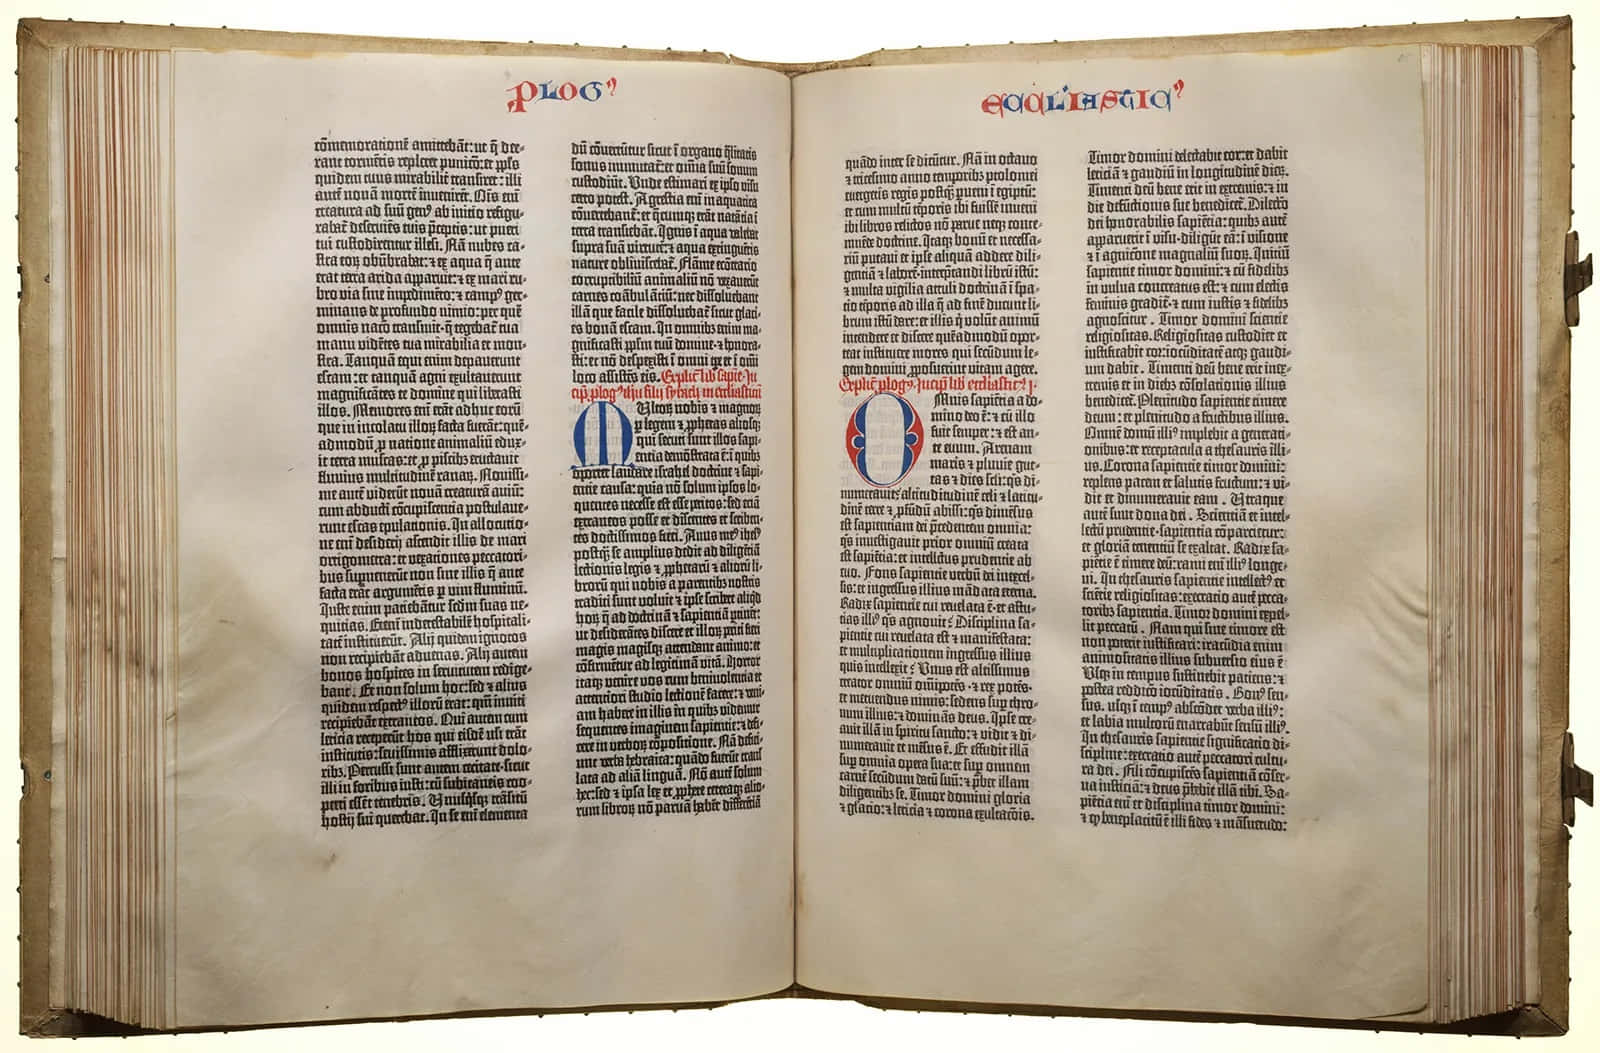 PLOGꝰ
cōmemorationē amittebāt: ut q̄ dee-
rant tormētis repleret punitio: et ppl's
quidem tuus mirabilit' transiret: illi
autē nouā mortē inuenirēt. Ois em̄
creatura ad suū genꝰ ab initio refigu-
rabat̄ deseruiēs tuis p̄ceptis: ut pueri
tui custodirentur illesi. Nā nubes ca-
stra eoꝝ obūbrabat: et ex aqua q̄ ante
erat terra arida apparuit: et ex mari ru-
bro via sine impedimēto: et campꝰ ger-
minans de profundo nimio: per quē
omnis natio transiuit. q̄ tegebat̄ tua
manu vidētes tua mirabilia et mon-
stra. Tanquā equi enim depauerunt
escam: et tanquā agni exultauerunt
magnificātes te domine qui liberasti
illos. Memores em̄ erāt adhuc eorū
que in incolatu illoꝝ facta fuerāt: quē-
admodū p̄ natione animaliū edux-
it terra muscas: et p̄ piscibꝫ eructauit
fluuius multitudinē ranaꝝ. Nouissi-
me autē viderūt nouā creaturā auiū:
cum abducti cōcupiscentia postulaue-
runt escas epulationis. In allocutio-
ne em̄ desiderij ascendit illis de mari
ortigometra: et vexationes peccatori-
bus superuenerūt non sine illis q̄ ante
facta erāt argumētis p̄ vim fluminū.
Juste enim patiebātur scdm suas ne-
quitias. Etenī indetestabilē hospitali-
tatē instituerūt. Alij quidem ignotos
non recipiebāt aduenas. Alij autem
bonos hospites in seruitutem redige-
bant. Et non solum hoc: sed et alius
quidem respectꝰ illorū erat: qm̄ inuiti
recipiebāt extraneos. Qui autem cum
leticia receperūt hos qui eisdē usi erāt
institutis: seuissimis afflixerunt dolo-
ribꝫ. Percussi sunt autem cecitate: sicut
illi in foribus iusti: cū subitaneis coo-
perti essēt tenebris. Vnusqsqꝫ trāsitū
hostij sui querebat. In se em̄ elementa
dū cōuertūtur sicut ī organo q̄litatis
sonus immutat̄: et omia suū sonum
custodiūt. Vnde estimari ex ipso visu
certo potest. Agrestia em̄ in aquatica
cōuertebant̄: et q̄cumqꝫ erāt natātia ī
terra transiebāt. Ignis ī aqua valebat
supra suā virtutē: et aqua extinguētis
nature obliuiscebat̄. Flāme ecōtrario
corruptibiliū animaliū nō vexauerūt
carnes coābulātiū: nec dissoluebant
illā que facile dissoluebat̄ sicut glaci-
es bonā escam. In omnibꝫ enim ma-
gnificasti ppl'm tuū domine: et honora-
sti: et nō despexisti ī omni tp̄e et ī omī
loco assistēs eis. Explic̄ lib' sapie. In-
cip̄. plogꝰ ihu filij syrach in ecclīasticū
Mvltoꝝ nobis et magnoꝝ
p̄ legem et ꝓphetas aliosqꝫ
qui secuti sunt illos sapi-
entia demōstrata ē: ī quibꝫ
oportet laudare israhel doctrine et sapi-
entie causa: quia nō solum ipsos lo-
quentes necesse est esse peritos: sed etiā
extraneos posse et discentes et scriben-
tes doctissimos fieri. Auus meꝰ ihesꝰ
postq̄ se amplius dedit ad diligētiā
lectionis legis et ꝓphetarū et alioꝝ li-
brorū qui nobis a parentibꝫ nostris
traditi sunt voluit et ipse scribere aliqd
hoꝝ q̄ ad doctrinā et sapientiam p̄tinēt:
ut desiderātes discere et illoꝝ periti facti
magis magisqꝫ attendant animo: et
cōfirmētur ad legitimā vitā. Hortor
itaqꝫ venire vos cum beniuolentia et
attentiori studio lectionē facere: et veni-
am habere in illis in quibꝫ videmur
sequentes imaginem sapientie: et defi-
cere in verboꝝ cōpositione. Nam defici-
unt verba hebraica: quādo fuerūt trans-
lata ad aliā linguam. Nō autē solum
hec: sed et ipsa lex et ꝓphete ceteraqꝫ alio-
rum libroꝝ nō paruā habēt differētiā
ECCLIASTICꝰ
quādo inter se dicūtur. Nā in octauo
et tricesimo anno temporibꝫ ptolomei
euergetis regis postq̄ pueni ī egiptū:
et cum multū tp̄oris ibi fuissē inueni
ibi libros relictos nō parue neqꝫ conte-
mnēde doctrine. Itaqꝫ bonū et necessa-
riū putaui et ipse aliquā addere dili-
gentiā et laborē interp̄tandi librū istū:
et multa vigilia attuli doctrinā ī spa-
cio tp̄oris ad illa q̄ ad finē ducunt li-
brum istū dare: et illis q̄ volūt animū
intendere et discere quēadmodū opor-
teat instituere mores qui secūdum le-
gem domini ꝓposuerint vitam agere.
Explic̄ plogꝰ. Incip̄ lib' ecclīasticꝰ. I.
Omnis sapiētia a do-
mino deo ē: et cū illo
fuit semper: et est an-
te euum. Arenam
maris et pluuie gut-
tas et dies seculi: qs di-
numerauit? altitudinē celi et latitu-
dinē terre et ꝓfūdū abissi: qs dimēsus
est? sapientiam dei p̄cedentem omnia:
qs inuestigauit? prior omniū creata
est sapiētia: et intellectus prudentie ab
euo. Fons sapientie verbū dei in excel-
sis: et ingressus illius mādata eterna.
Radix sapientie cui reuelata ē: et astu-
tias illiꝰ qs agnouit? Disciplina sa-
pientie cui reuelata est et manifestata:
et multiplicationem ingressus illius
quis intellexit? Vnus est altissimus
creator omniū om̄ipotēs. et rex potēs
et metuendus nimis: sedens sup̄ thro-
num illius: et dominās deus. Ipse cre-
auit illā in spiritu sancto: et vidit et di-
numerauit et mēsus ē. Et effudit illā
sup̄ omnia opera sua: et sup̄ omnem
carnē secūdum datū suū: et p̄bet illam
diligentibꝫ se. Timor domini gloria
et gl'atio: et leticia et corona exultatōis.
Timor domini delectabit cor: et dabit
leticiā et gaudiū in longitudinē dieꝝ.
Timenti deū bene erit in extremis: et in
die defūctionis sue benedicet̄. Dilectio
dei honorabilis sapiētia: quibꝫ autē
apparuerit ī visu. diligūt eā: ī visione
et ī agnitione magnaliū suoꝝ. Initiū
sapientie timor domini: et cū fidelibꝫ
in vulua concreatus est: et cum electis
feminis gradit̄: et cum iustis et fidelibꝫ
agnoscitur. Timor domini scientie
religiositas. Religiositas custodiet et
iustificabit cor: iocūditatē atqꝫ gaudi-
um dabit. Timenti deū bene erit: in ex-
tremis et in diebꝫ cōsolationis illius
benedicet̄. Plenitudo sapientie timere
deum: et plenitudo a fructibus illius.
Omnē domū illiꝰ implebit a generati-
onibus: et receptacula a thesauris illi-
us. Corona sapientie timor domini:
replens pacem et salutis fructum: et vi-
dit et dinumerauit eam. Vtraque
autē sunt dona dei. Scientiā et intel-
lectū prudentie sapientia cōpartietur:
et gloriā tenentiū se exaltat. Radix sa-
piētie ē timere deū: rami em̄ illiꝰ longe-
ui. In thesauris sapientie intellectꝰ et
sciētie religiositas: execratio autē pecca-
toribꝫ sapientia. Timor domini expel-
lit peccatū. Nam qui sine timore est
non poterit iustificari: iracūdia enim
animositatis illius subuersio eius ē.
Vsqꝫ in tempus sustinebit patiens: et
postea redditio iocūditatis. Bonꝰ sen-
sus. usqꝫ ī tempꝰ abscōdet verba illiꝰ:
et labia multorū enarrabūt sensū illiꝰ.
In thesauris sapientie significatio di-
scipline: execratio autē peccatori cultu-
ra dei. Fili cōcupiscēs sapientiam cōser-
ua iusticiā: et deus p̄bebit illā tibi. Sa-
piētia em̄ et disciplina timor domini:
et qd beneplacitū ē illi fides et māsuetudo: